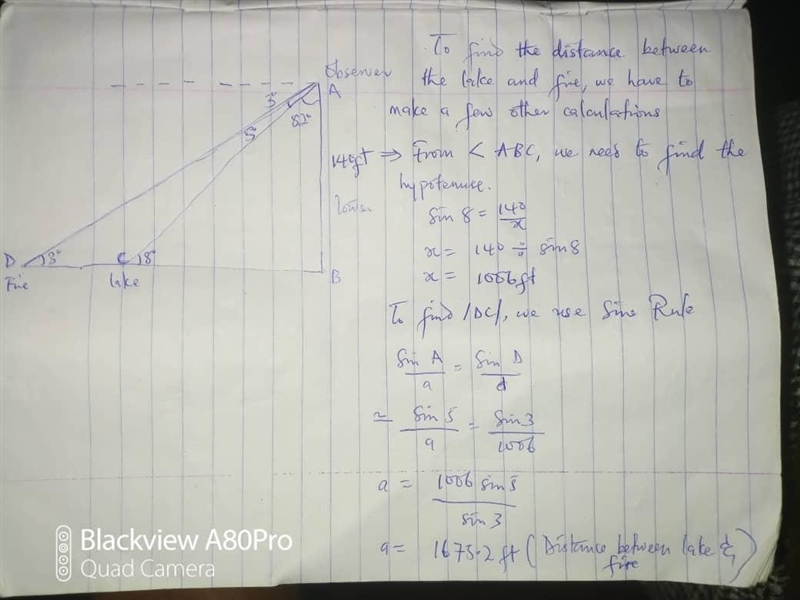 Observer
A
3°
5°
82°
140ft
D
3°
C
8°
B
Fire
lake
To find the distance between
the lake and fire, we have to
make a few other calculations
⇒ From < ABC, we need to find the
hypotenuse.
Sin 8 = 140/x
x = 140 ÷ sin8
x = 1006ft
To find /DC/, we use Sine Rule
Sin A/a = Sin D/d
= Sin 5/a = Sin 3/1006
a = 1006 sin5/sin 3
a = 1675.2 ft (Distance between lake &
fire)
Blackview A80Pro
Quad Camera